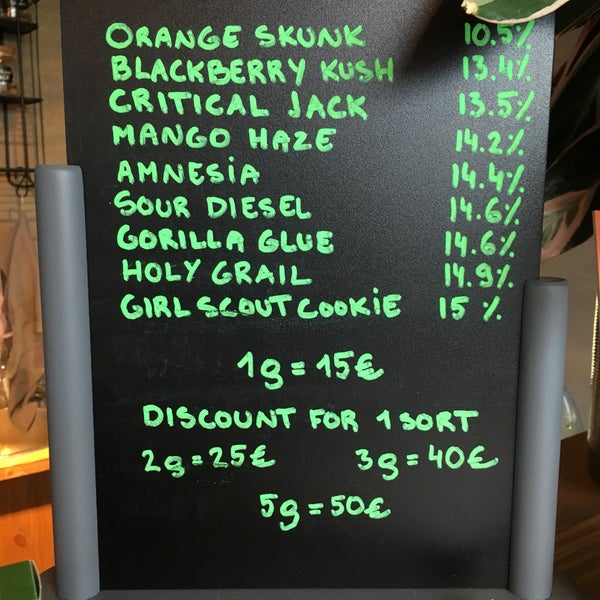 ORANGE SKUNK 10.5%
BLACKBERRY KUSH 13.4%
CRITICAL JACK 13.5%
MANGO HAZE 14.2%
AMNESiA 14.4%
SOUR DIESEL 14.6%
GORILLA GLUE 14.6%
HOLY GRAIL 14.9%
GIRL SCOUT COOKiE 15 %
1g = 15€
DISCOUNT FOR 1 SORT
2g = 25€ 3g = 40€
5g = 50€